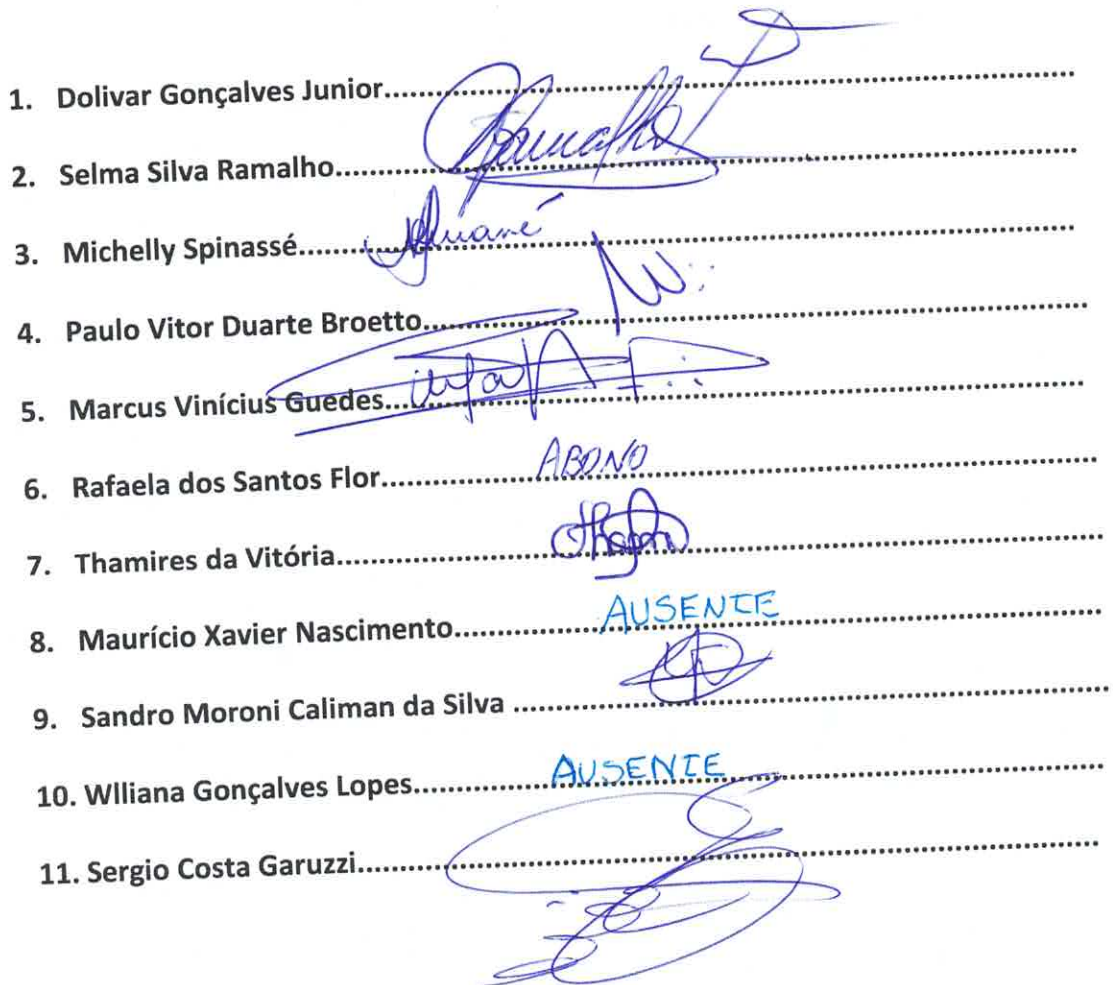 1. Dolivar Gonçalves Junior..........................................................................
2. Selma Silva Ramalho.......... Ramalho ..........................................................
3. Michelly Spinassé..........................................................................
4. Paulo Vitor Duarte Broetto..........................................................................
5. Marcus Vinícius Guedes..........................................................................
6. Rafaela dos Santos Flor.......... ABONO ..........................................................
7. Thamires da Vitória..........................................................................
8. Maurício Xavier Nascimento.......... AUSENTE ..........................................................
9. Sandro Moroni Caliman da Silva ..........................................................................
10. Wlliana Gonçalves Lopes.......... AUSENTE ..........................................................
11. Sergio Costa Garuzzi..........................................................................